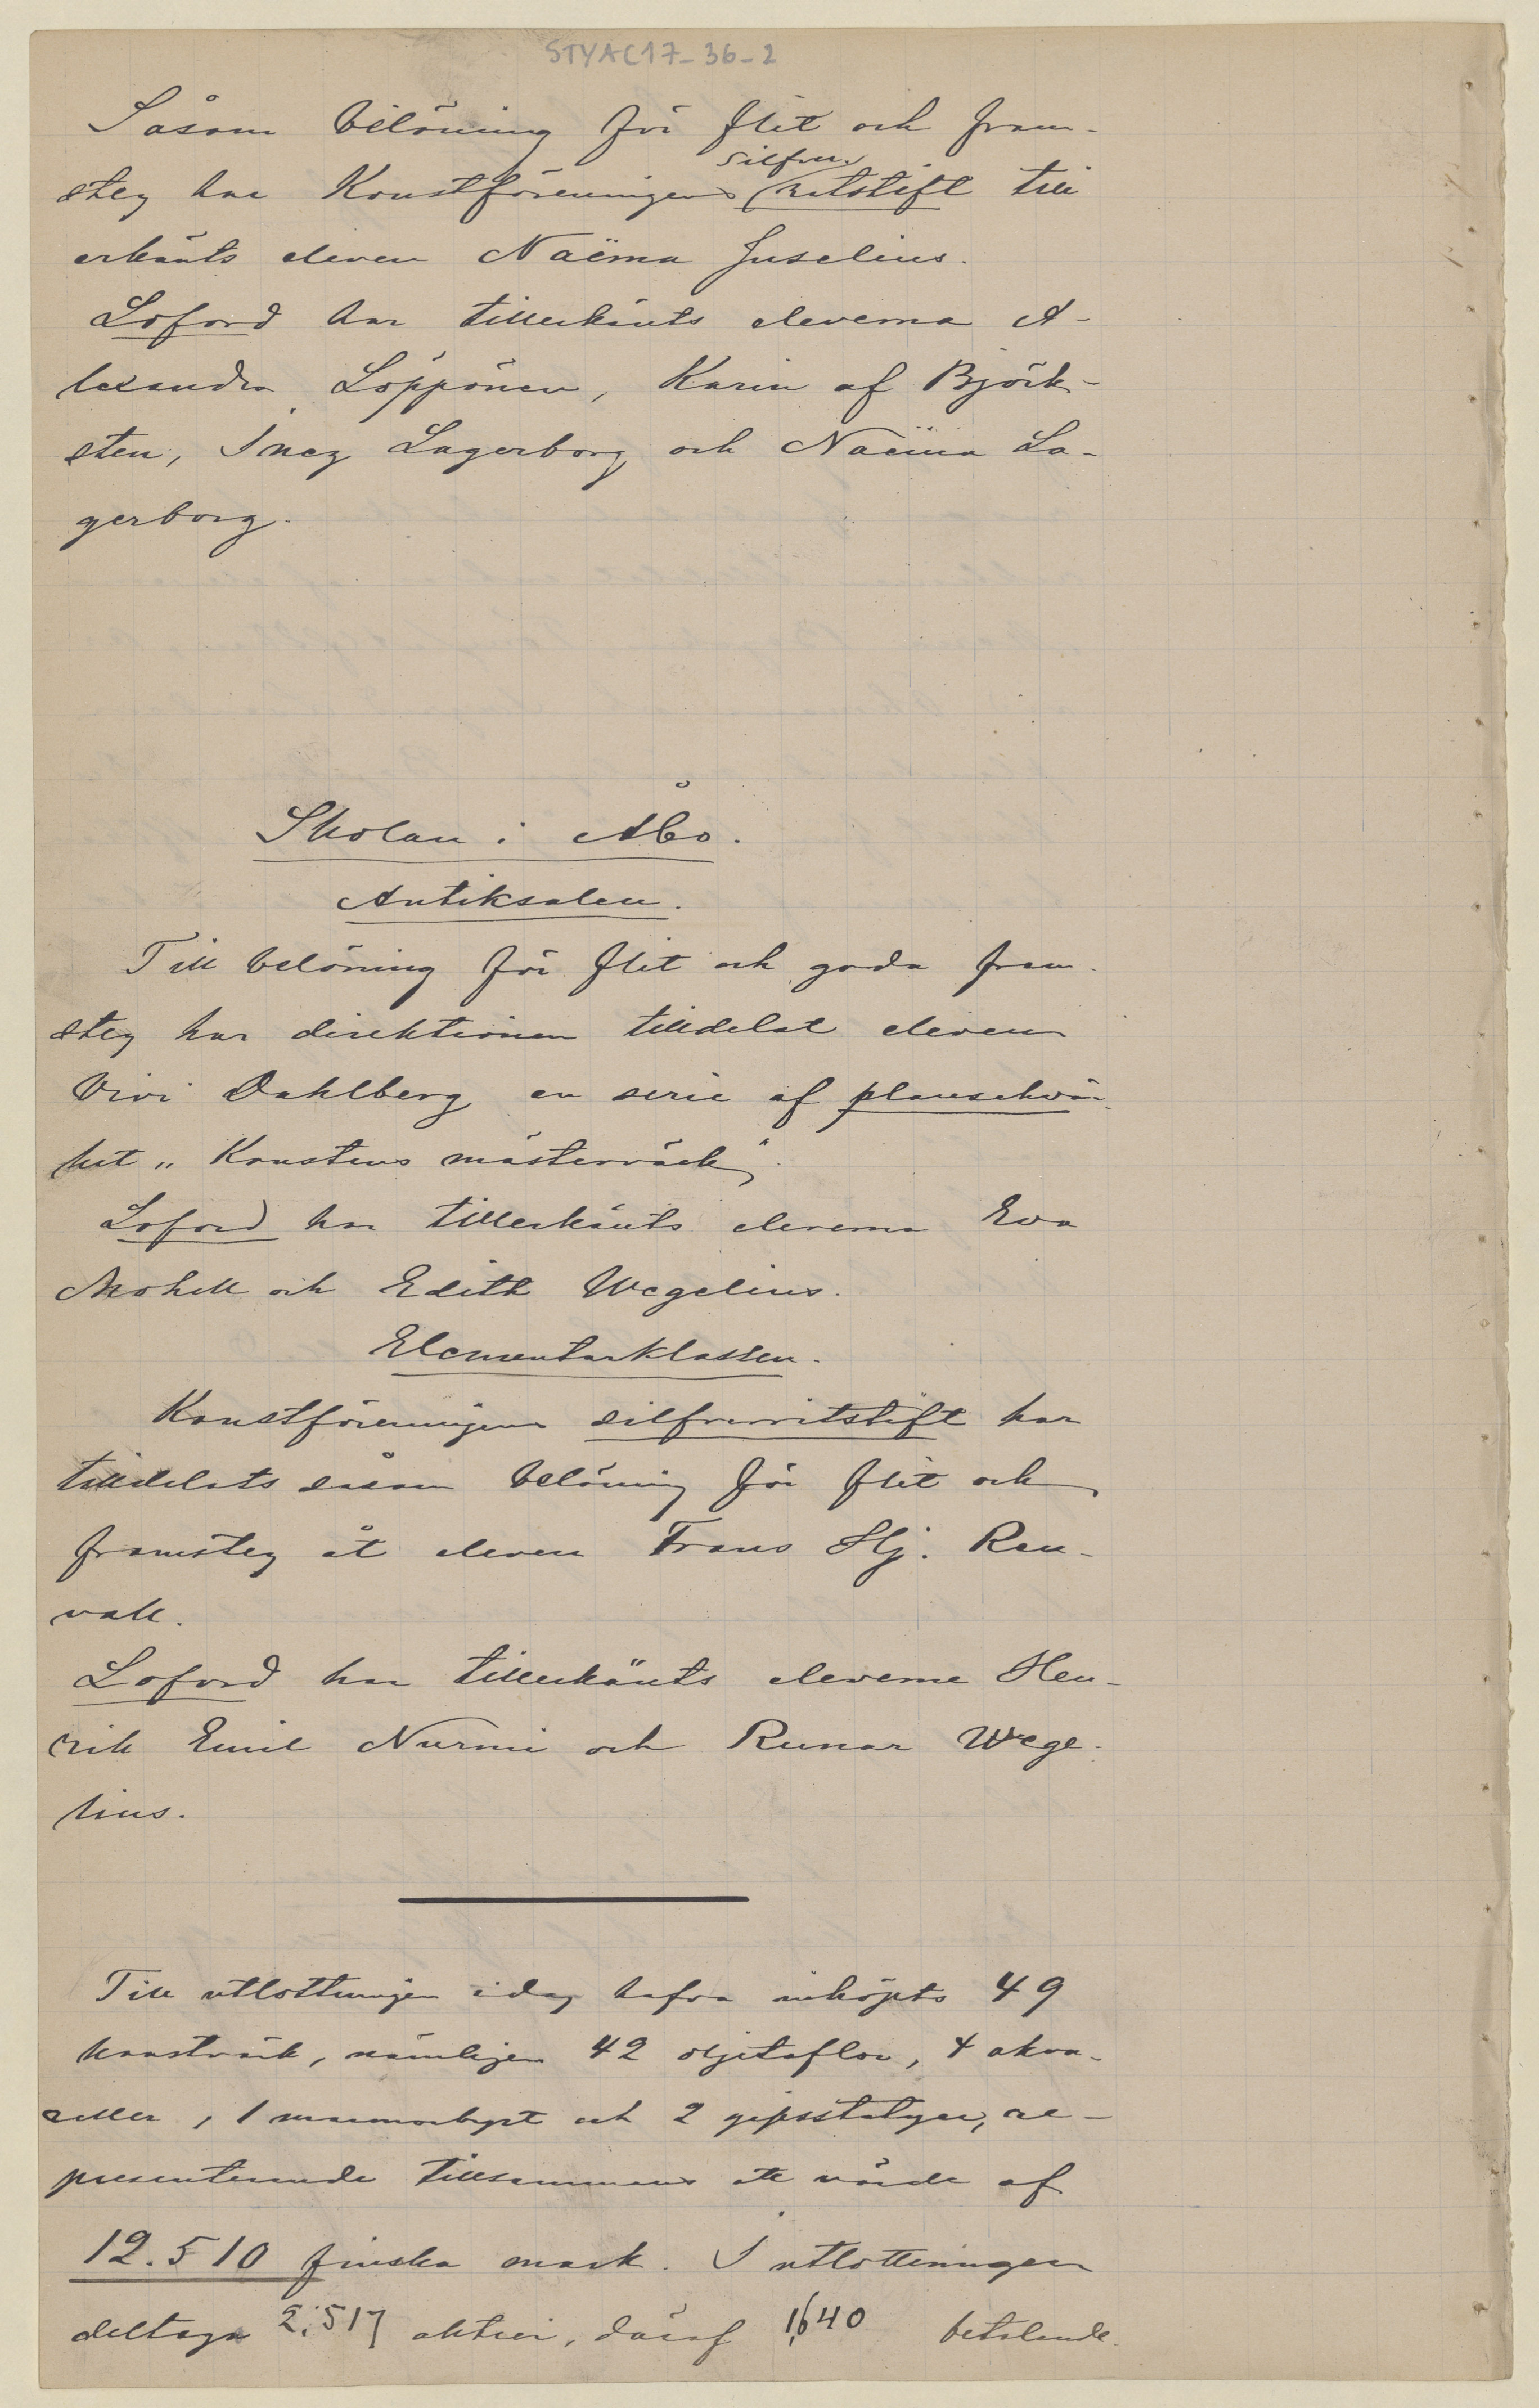 STYAC17-36-2
Såsom belöning för flit och fram-
steg har Konstföreningens silfver
ritstift till
erkänts eleven Naëma Juselius.
Loford har tillerkänts eleverna A-
lexandra Löppönen, Karin af Björk-
sten, Inez Lagerborg och Naëma La-
gerborg.
Skolan i Åbo.
Antiksalen.
Till belöning för flit och goda fram-
steg har direktionen tilldelat eleven
Vivi Dahlberg en serie af planschvär-
ket „Konstens mästervärk".
Loford har tillerkänts eleverna Eva
Mohell och Edith Wegelius.
Elementarklassen.
Konstföreningens silfverritstift har
tilldelats såsom belöning för flit och
framsteg åt eleven Frans Hj. Ren-
vall.
Loford har tillerkänts eleverne Hen-
rik Emil Nurmi och Runar Wege-
lius.
Till utlottningen idag hafva inköpts 49
konstvärk, nämligen 42 oljetaflor, 4 akva-
reller, 1 marmorbyst och 2 gipsstatyer, re-
presenterande tillsammans ett värde af
12.510 finska mark. I utlottningen
deltaga 2,517 aktier, däraf 1,640 betalande.